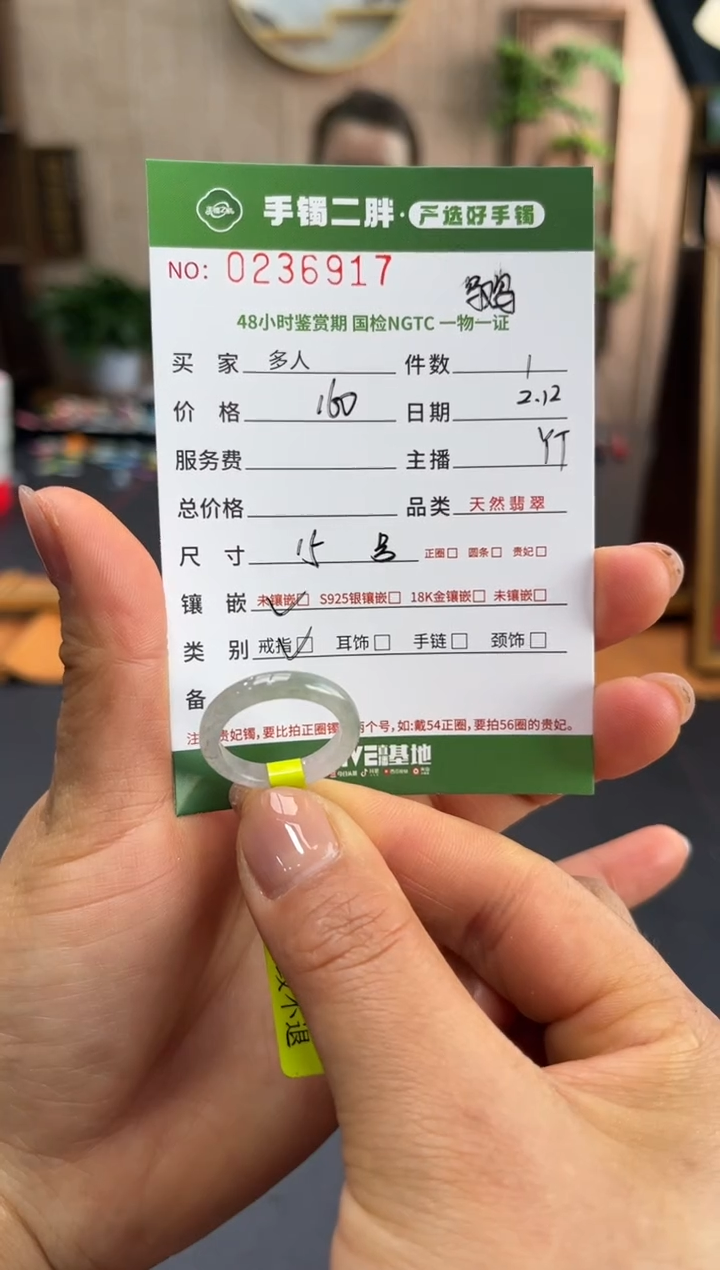 手镯二胖·严选好手镯
NO: 0236917
48小时鉴赏期 国检NGTC 一物一证
买 家 多人 件数 1
价 格 160 日期 2.12
服务费 主播 YT
总价格 品类 天然翡翠
尺 寸 15 号 正圈□ 圆条□ 贵妃□
镶 嵌 未镶嵌☑ S925银镶嵌□ 18K金镶嵌□ 未镶嵌□
类 别 戒指☑ 耳饰□ 手链□ 颈饰□
备
贵妃镯,要比拍正圈镯 两个号,如:戴54正圈,要拍56圈的贵妃。
基地
不退